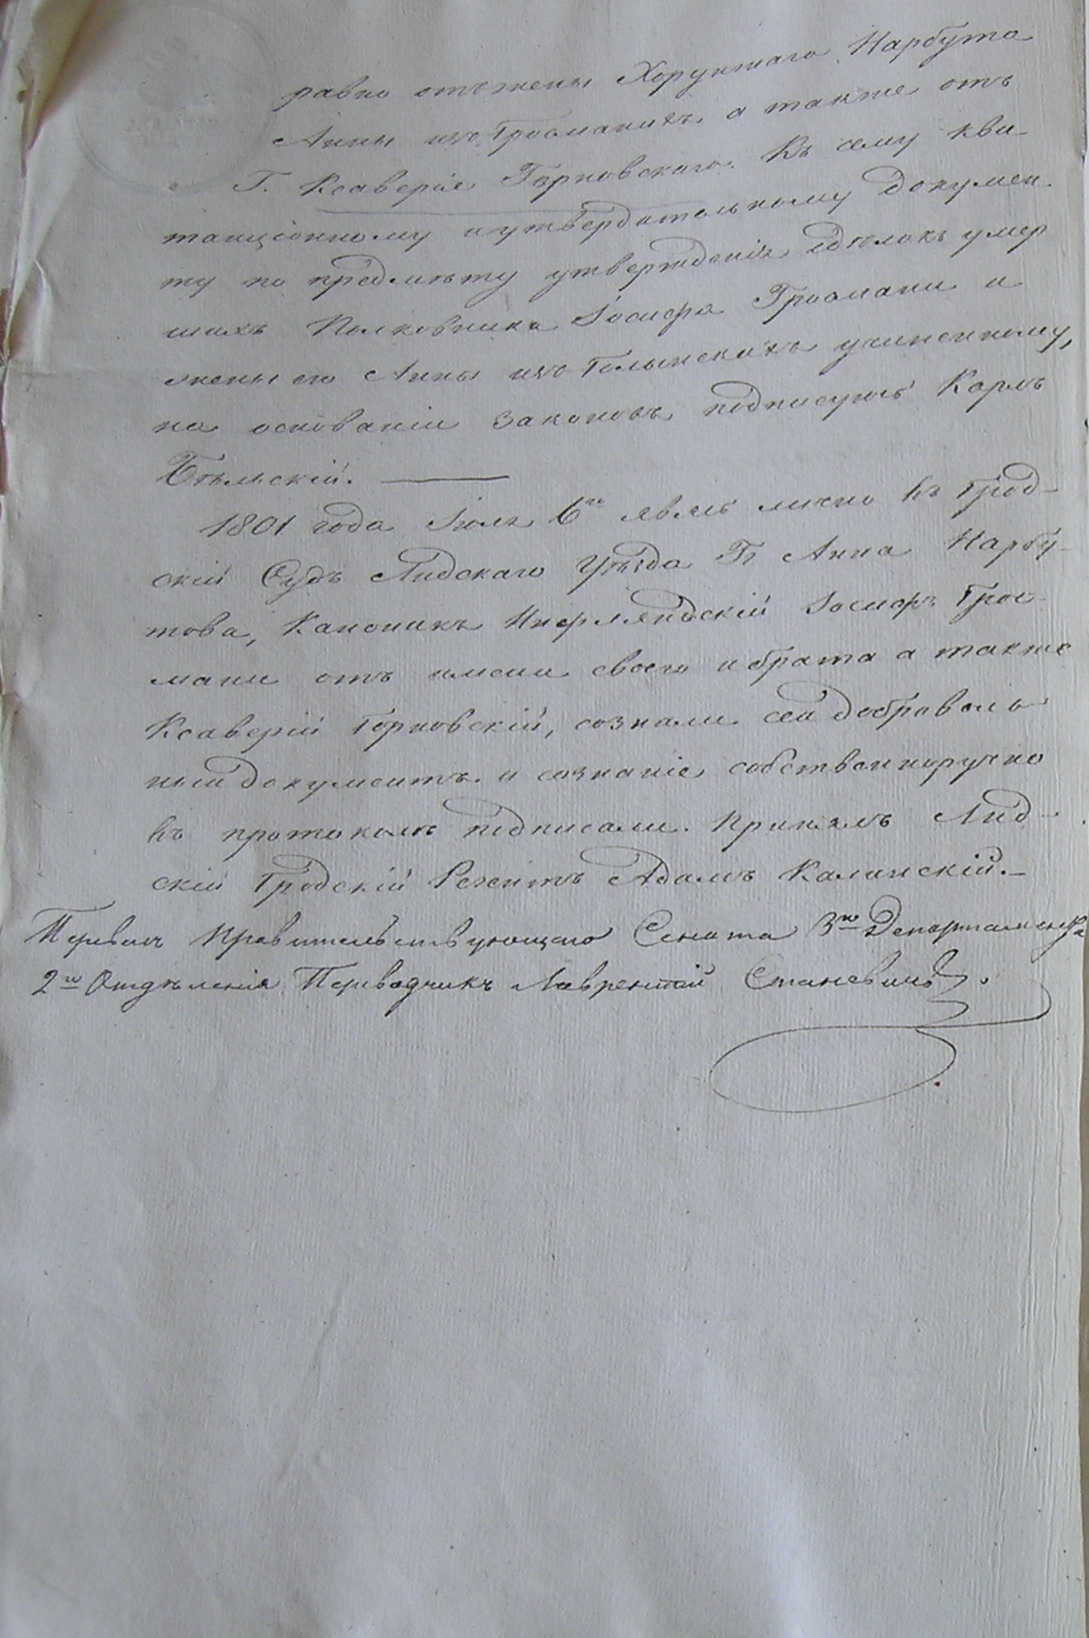 равно отъ жены Хорунжаго Нарбута
Анны изъ Гросмановъ, а также отъ
Г. Ксаверія Горновскаго. Къ сему кви-
танціонному и утвердительному докумен-
ту по предмѣту утвержденія сдѣлокъ умер
шихъ Полковника Іосифа Гросмани и
жены его Анны изъ Голынскихъ учиненному,
на основаніи законовъ подписуюсь Карлъ
Бѣльскій.
1801 года Іюля 6го явясь лично въ Грод-
скій Судъ Лидскаго Уѣзда Гг. Анна Нарбу-
това, Каноникъ Инфляндскій Іосифъ Грос-
мани отъ имени своего и брата а также
Ксаверій Горновскій, сознали сей доброволь
ный документъ и сознаніе собственноручно
въ протоколѣ подписали. Принялъ Лид-
скій Гродскій Регентъ Адамъ Калинскій.
Перевелъ Правительствующаго Сената 3го Департамента
2го Отдѣленія Переводчикъ Лаврентій Станевичъ.